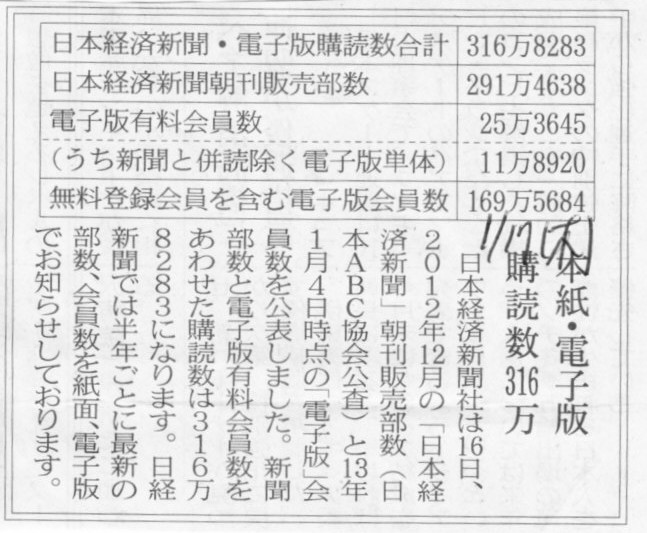 日本経済新聞・電子版購読数合計 316万8283
日本経済新聞朝刊販売部数 291万4638
電子版有料会員数 25万3645
(うち新聞と併読除く電子版単体) 11万8920
無料登録会員を含む電子版会員数 169万5684
1/17(木)
本紙・電子版
購読数316万
日本経済新聞社は16日、
2012年12月の「日本経
済新聞」朝刊販売部数(日
本ABC協会公査)と13年
1月4日時点の「電子版」会
員数を公表しました。新聞
部数と電子版有料会員数を
あわせた購読数は316万
8283になります。日経
新聞では半年ごとに最新の
部数、会員数を紙面、電子版
でお知らせしております。